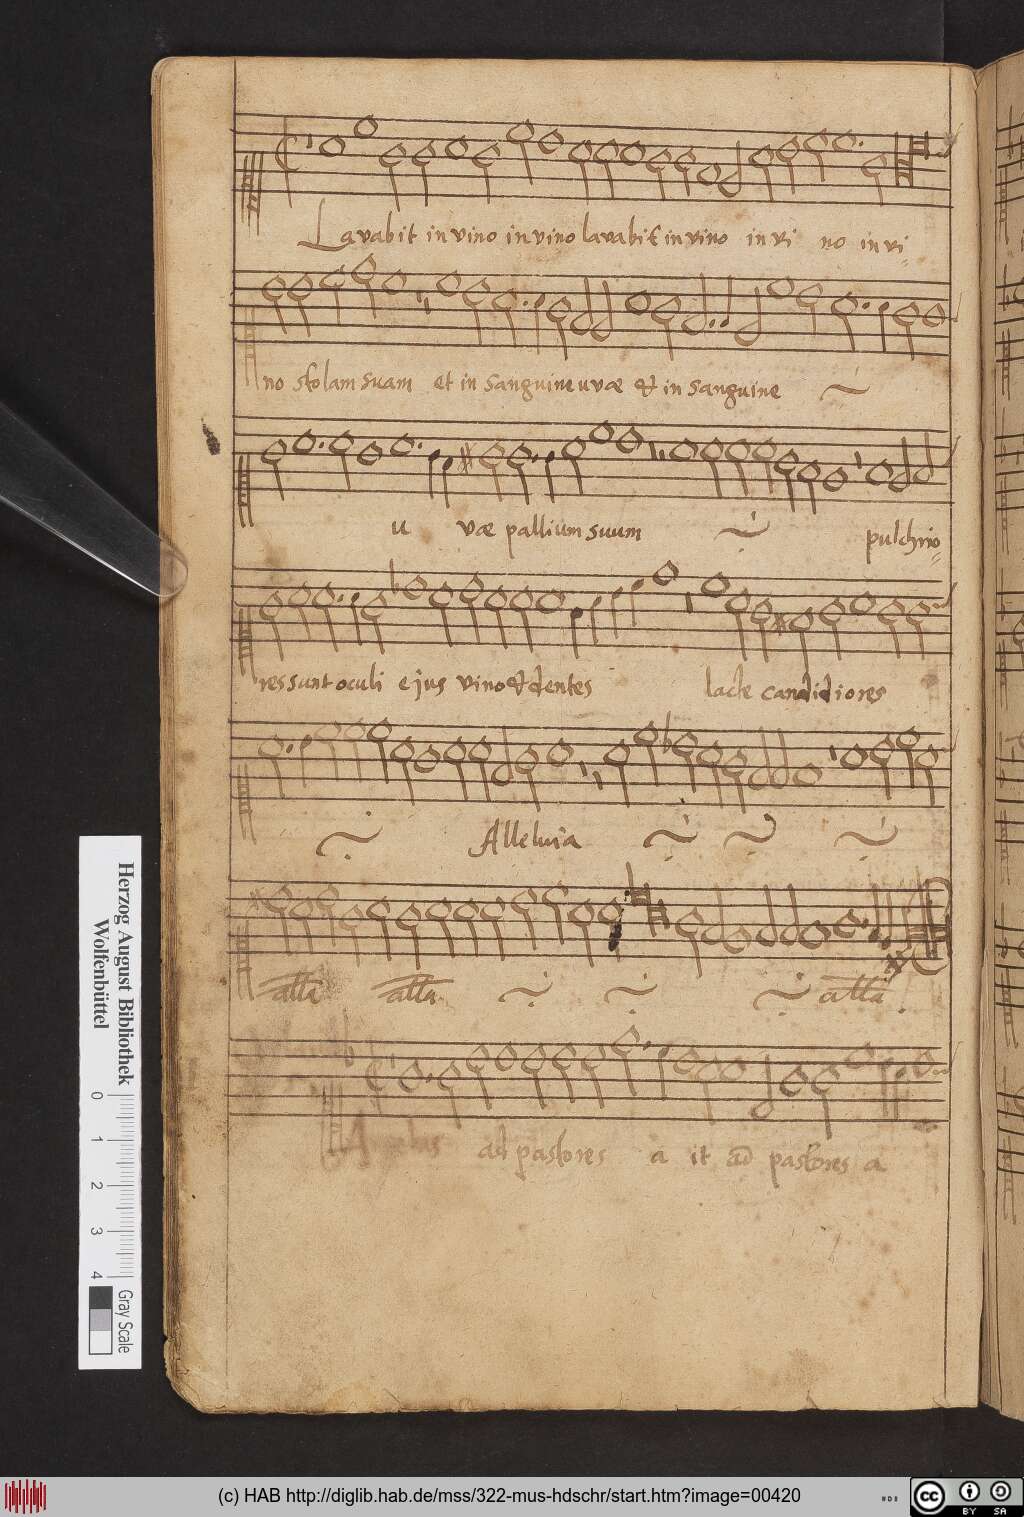 Lavabit in vino in vino lavabit in vino in vi no in vi
no stolam suam et in sanguine uvæ & in sanguine
u væ pallium suum pulchrio
res sunt oculi ejus vino & dentes lacte candidiores
Alleluia
alla alla alla
ad pastores a it ad pastores a
Herzog August Bibliothek
Wolfenbüttel
0 1 2 3 4
Gray Scale
(c) HAB http://diglib.hab.de/mss/322-mus-hdschr/start.htm?image=00420
cc BY SA